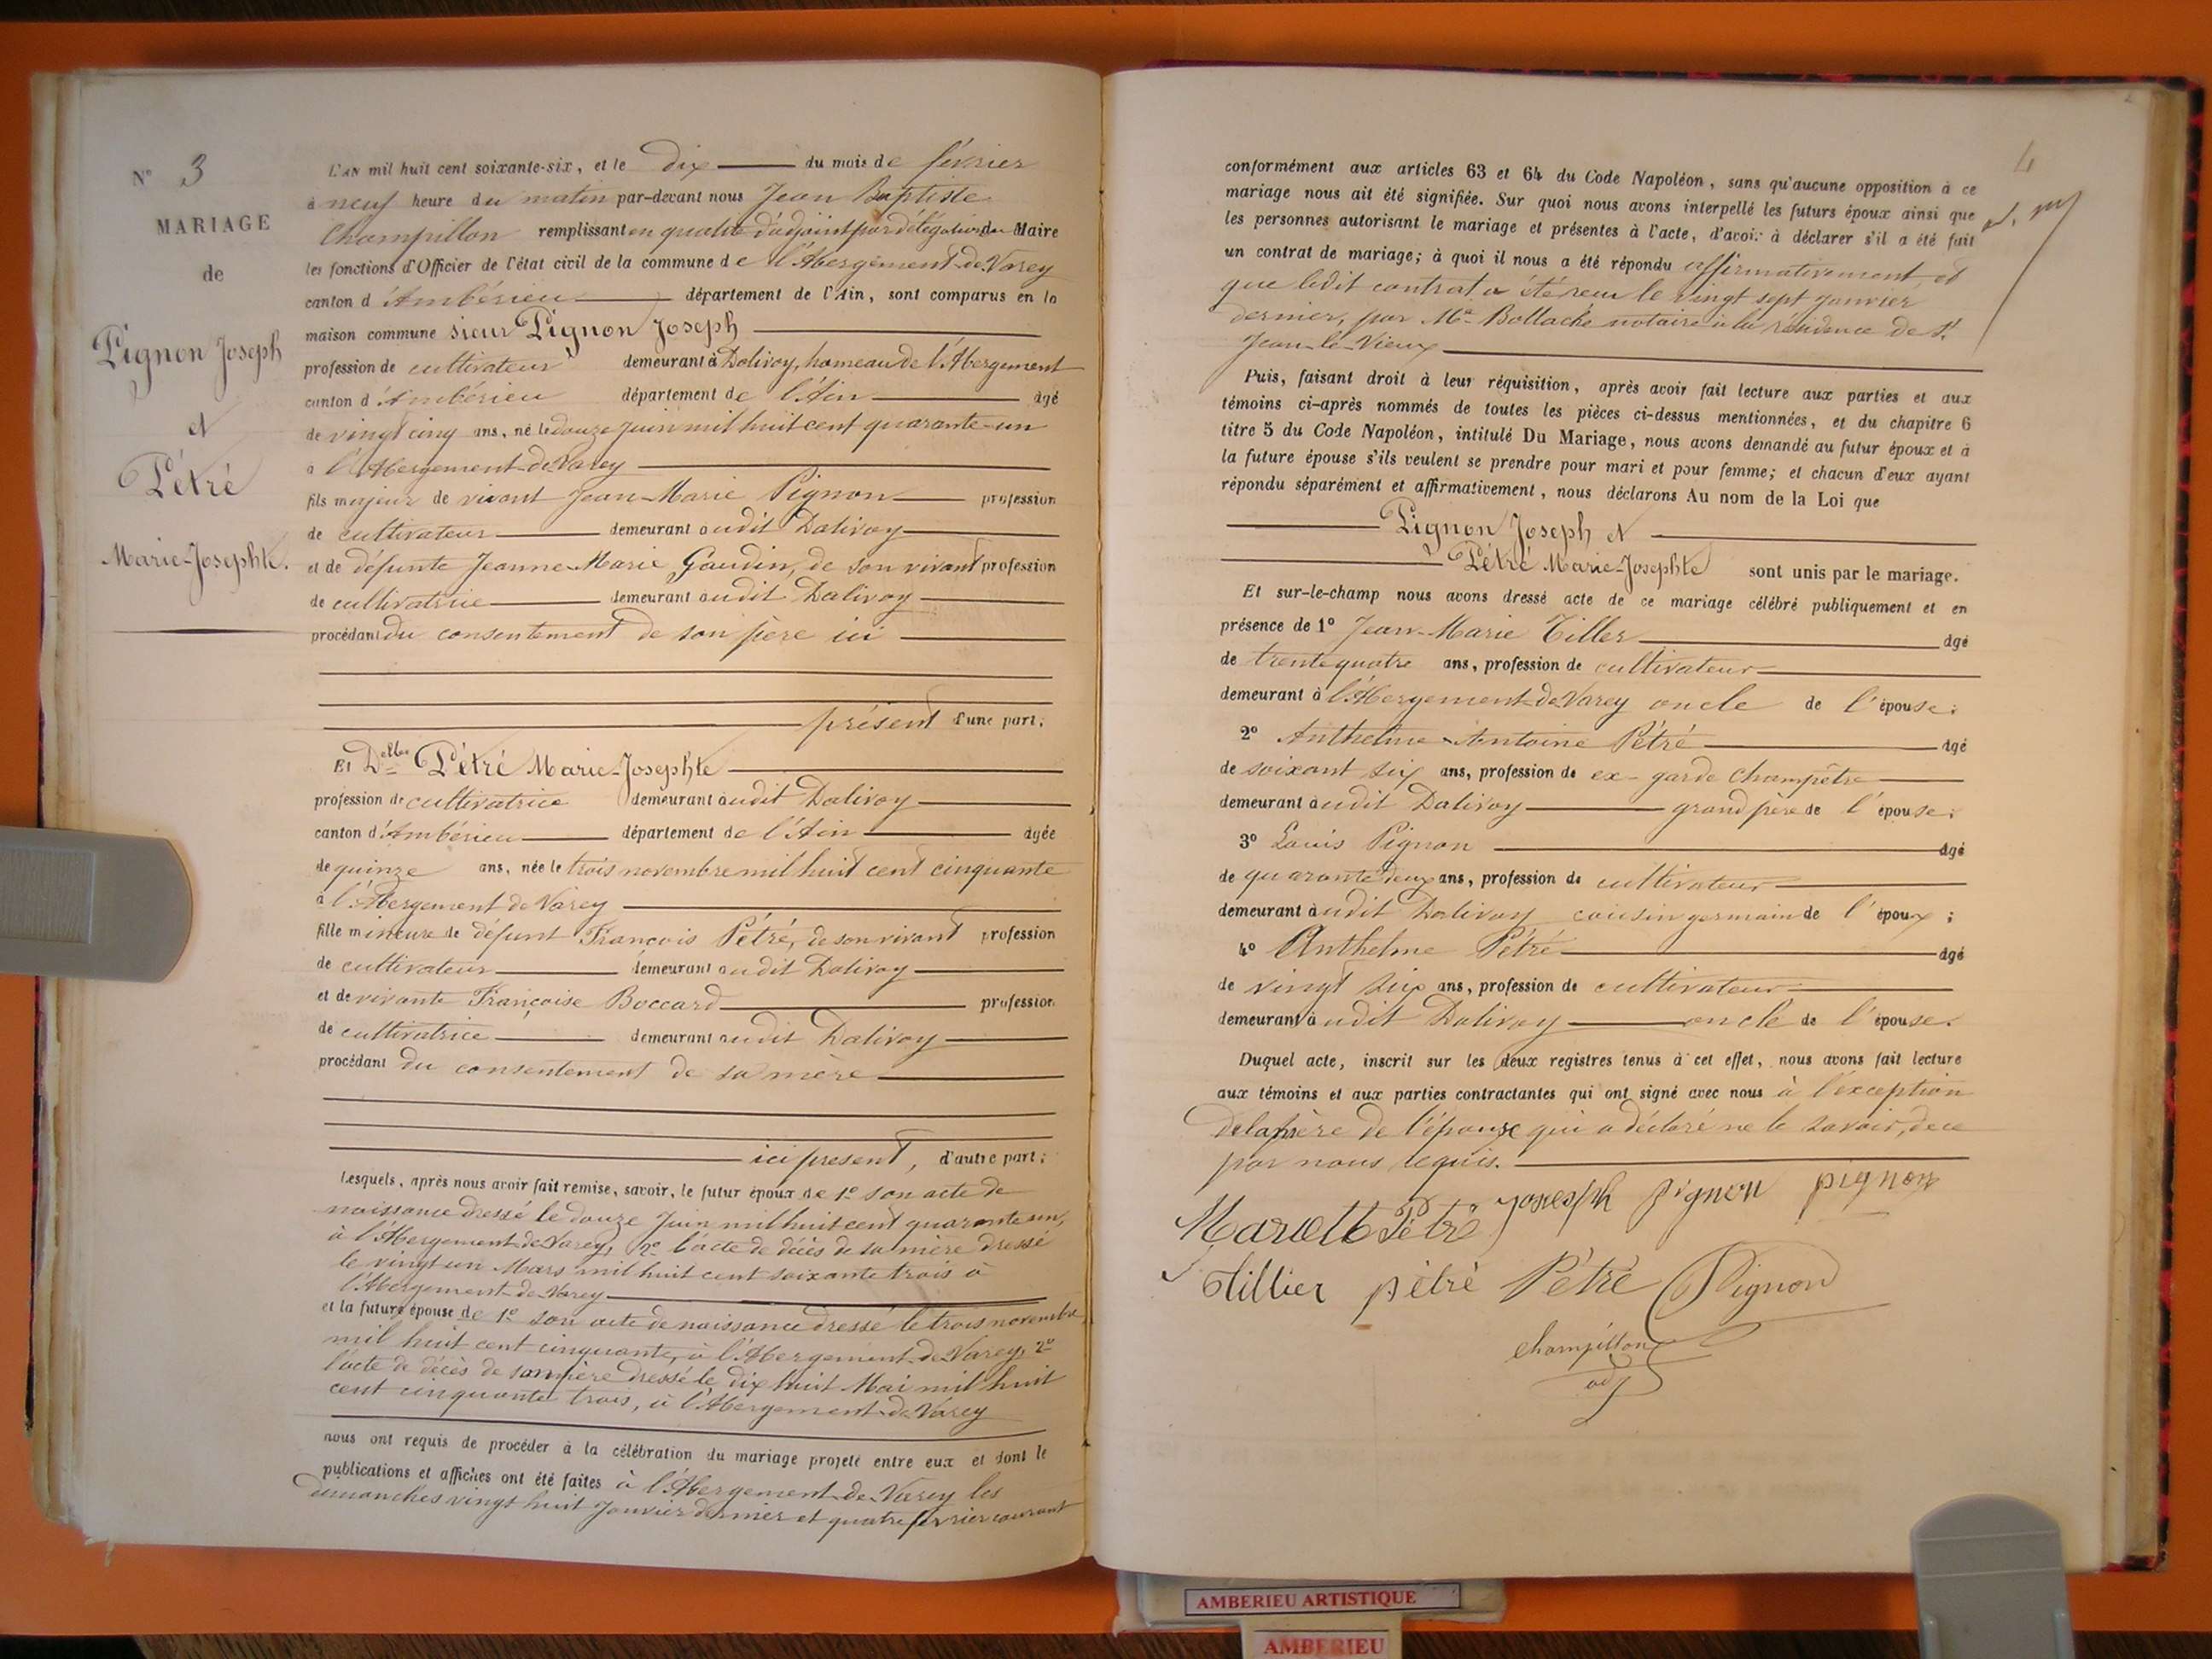 N° 3
MARIAGE
de
Pignon Joseph
et
Pétré
Marie-Josephte.
L'AN mil huit cent soixante-six, et le dix du mois de février
à neuf heure du matin par-devant nous Jean Baptiste
Champillon remplissant en qualité d'adjoint par délégation du Maire
les fonctions d'Officier de l'état civil de la commune de l'Abergement-de-Varey
canton d'Ambérieu département de l'Ain, sont comparus en la
maison commune sieur Pignon Joseph
profession de cultivateur demeurant à Dalivoy, hameau de l'Abergement
canton d'Ambérieu département de l'Ain âgé
de vingt cinq ans, né le douze juin mil huit cent quarante-un
à l'Abergement-de-Varey
fils majeur de vivant Jean-Marie Pignon profession
de cultivateur demeurant audit Dalivoy
et de défunte Jeanne-Marie Gaudin, de son vivant profession
de cultivatrice demeurant audit Dalivoy
procédant du consentement de son père ici
présent d'une part;
Et Delle Pétré Marie-Josephte
profession de cultivatrice demeurant audit Dalivoy
canton d'Ambérieu département de l'Ain âgée
de quinze ans, née le trois novembre mil huit cent cinquante
à l'Abergement de Varey
fille mineure de défunt François Pétré, de son vivant profession
de cultivateur demeurant audit Dalivoy
et de vivante Françoise Boccard profession
de cultivatrice demeurant audit Dalivoy
procédant du consentement de sa mère
ici present, d'autre part;
Lesquels, après nous avoir fait remise, savoir, le futur époux de 1° son acte de
naissance dressé le douze Juin mil huit cent quarante un,
à l'Abergement de Varey, 2° l'acte de décès de sa mère dressé
le vingt un Mars mil huit cent soixante trois à
l'Abergement-de-Varey
et la future épouse de 1° son acte de naissance dressé le trois novembre
mil huit cent cinquante, à l'Abergement de Varey, 2°
l'acte de décès de son père dressé le dix huit Mai mil huit
cent cinquante trois, à l'Abergement-de-Varey
nous ont requis de procéder à la célébration du mariage projeté entre eux et dont le
publications et affiches ont été faites à l'Abergement-de-Varey les
dimanches vingt huit Janvier dernier et quatre février courant
4
conformément aux articles 63 et 64 du Code Napoléon, sans qu'aucune opposition à ce
mariage nous ait été signifiée. Sur quoi nous avons interpellé les futurs époux ainsi que
les personnes autorisant le mariage et présentes à l'acte, d'avoir à déclarer s'il a été fait
un contrat de mariage; à quoi il nous a été répondu affirmativement, et
que ledit contrat a été reçu le vingt sept Janvier
dernier, par Me Bollache notaire à la résidence de St
Jean-le-Vieux
Puis, faisant droit à leur réquisition, après avoir fait lecture aux parties et aux
témoins ci-après nommés de toutes les pièces ci-dessus mentionnées, et du chapitre 6
titre 5 du Code Napoléon, intitulé Du Mariage, nous avons demandé au futur époux et à
la future épouse s'ils veulent se prendre pour mari et pour femme; et chacun d'eux ayant
répondu séparément et affirmativement, nous déclarons Au nom de la Loi que
Pignon Joseph et
Pétré Marie-Josephte sont unis par le mariage.
Et sur-le-champ nous avons dressé acte de ce mariage célébré publiquement et en
présence de 1° Jean-Marie Tiller âgé
de trente quatre ans, profession de cultivateur
demeurant à l'Abergement-de-Varey oncle de l'épouse;
2° Anthelme-Antoine Pétré âgé
de soixant six ans, profession de ex-garde champêtre
demeurant audit Dalivoy grand père de l'épouse;
3° Louis Pignon âgé
de quarante deux ans, profession de cultivateur
demeurant audit Dalivoy cousin germain de l'époux;
4° Anthelme Pétré âgé
de vingt six ans, profession de cultivateur
demeurant audit Dalivoy oncle de l'épouse.
Duquel acte, inscrit sur les deux registres tenus à cet effet, nous avons fait lecture
aux témoins et aux parties contractantes qui ont signé avec nous à l'exception
de la mère de l'épouse qui a déclaré ne le savoir, de ce
par nous requis.
Pétré Josesph pignon pignon
tillier pétré Pétré Pignon
Champillon
adj
AMBERIEU ARTISTIQUE
AMBERIEU